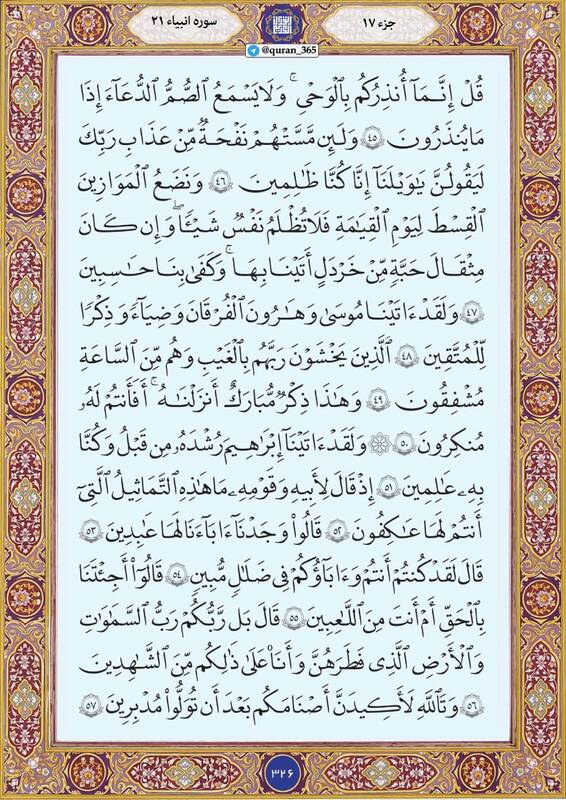 جزء ۱۷
سوره انبیاء ۲۱
@quran_365
قُلْ إِنَّمَآ أُنذِرُكُم بِٱلْوَحْىِ ۚ وَلَا يَسْمَعُ ٱلصُّمُّ ٱلدُّعَآءَ إِذَا
مَا يُنذَرُونَ ۴۵ وَلَئِن مَّسَّتْهُمْ نَفْحَةٌ مِّنْ عَذَابِ رَبِّكَ
لَيَقُولُنَّ يَٰوَيْلَنَآ إِنَّا كُنَّا ظَٰلِمِينَ ۴۶ وَنَضَعُ ٱلْمَوَٰزِينَ
ٱلْقِسْطَ لِيَوْمِ ٱلْقِيَٰمَةِ فَلَا تُظْلَمُ نَفْسٌ شَيْـًٔا ۖ وَإِن كَانَ
مِثْقَالَ حَبَّةٍ مِّنْ خَرْدَلٍ أَتَيْنَا بِهَا ۗ وَكَفَىٰ بِنَا حَٰسِبِينَ
۴۷ وَلَقَدْ ءَاتَيْنَا مُوسَىٰ وَهَٰرُونَ ٱلْفُرْقَانَ وَضِيَآءً وَذِكْرًا
لِّلْمُتَّقِينَ ۴۸ ٱلَّذِينَ يَخْشَوْنَ رَبَّهُم بِٱلْغَيْبِ وَهُم مِّنَ ٱلسَّاعَةِ
مُشْفِقُونَ ۴۹ وَهَٰذَا ذِكْرٌ مُّبَارَكٌ أَنزَلْنَٰهُ ۚ أَفَأَنتُمْ لَهُۥ
مُنكِرُونَ ۵۰ ۞ وَلَقَدْ ءَاتَيْنَآ إِبْرَٰهِيمَ رُشْدَهُۥ مِن قَبْلُ وَكُنَّا
بِهِۦ عَٰلِمِينَ ۵۱ إِذْ قَالَ لِأَبِيهِ وَقَوْمِهِۦ مَا هَٰذِهِ ٱلتَّمَاثِيلُ ٱلَّتِىٓ
أَنتُمْ لَهَا عَٰكِفُونَ ۵۲ قَالُوا۟ وَجَدْنَآ ءَابَآءَنَا لَهَا عَٰبِدِينَ ۵۳
قَالَ لَقَدْ كُنتُمْ أَنتُمْ وَءَابَآؤُكُمْ فِى ضَلَٰلٍ مُّبِينٍ ۵۴ قَالُوٓا۟ أَجِئْتَنَا
بِٱلْحَقِّ أَمْ أَنتَ مِنَ ٱللَّٰعِبِينَ ۵۵ قَالَ بَل رَّبُّكُمْ رَبُّ ٱلسَّمَٰوَٰتِ
وَٱلْأَرْضِ ٱلَّذِى فَطَرَهُنَّ وَأَنَا۠ عَلَىٰ ذَٰلِكُم مِّنَ ٱلشَّٰهِدِينَ
۵۶ وَتَٱللَّهِ لَأَكِيدَنَّ أَصْنَٰمَكُم بَعْدَ أَن تُوَلُّوا۟ مُدْبِرِينَ ۵۷
۳۲۶